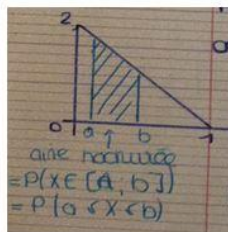 2
0 a b 1
aire hachurée
=P(X∈[A;b])
=P(a≤X≤b)